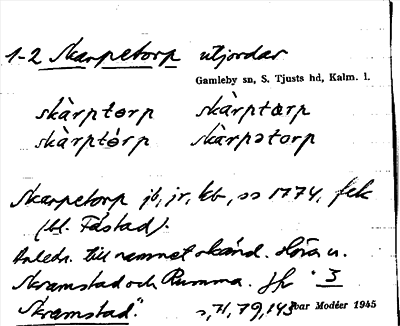 1-2 Skarpetorp utjordar
Gamleby sn, S. Tjusts hd, Kalm. l.
skàrptørp skàrptærp
skàrptórp skàrpətorp
Skarpetorp jb, jr, kb, ss 1774, fek
(bl. Fastad).
Anledn. till namnet okänd. Höra u.
Skramstad och Rumma. Jfr 3
Skramstad". s, 71, 79, 143 Ivar Modéer 1945